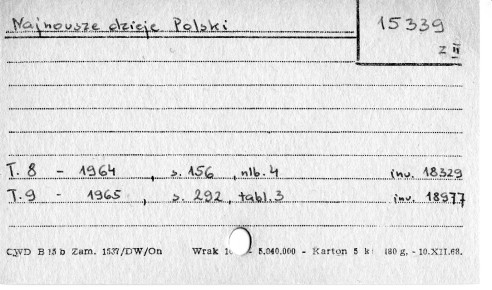 Najnowsze dzieje Polski
15339
Z II
T. 8 - 1964 , s. 156 , nlb. 4 inv. 18329
T. 9 - 1965 , s. 292 , tabl. 3 inv. 18977
CWD B 15 b Zam. 1537/DW/On Wrak - 5.040.000 - Karton 5 k: 180 g. - 10.XII.68.